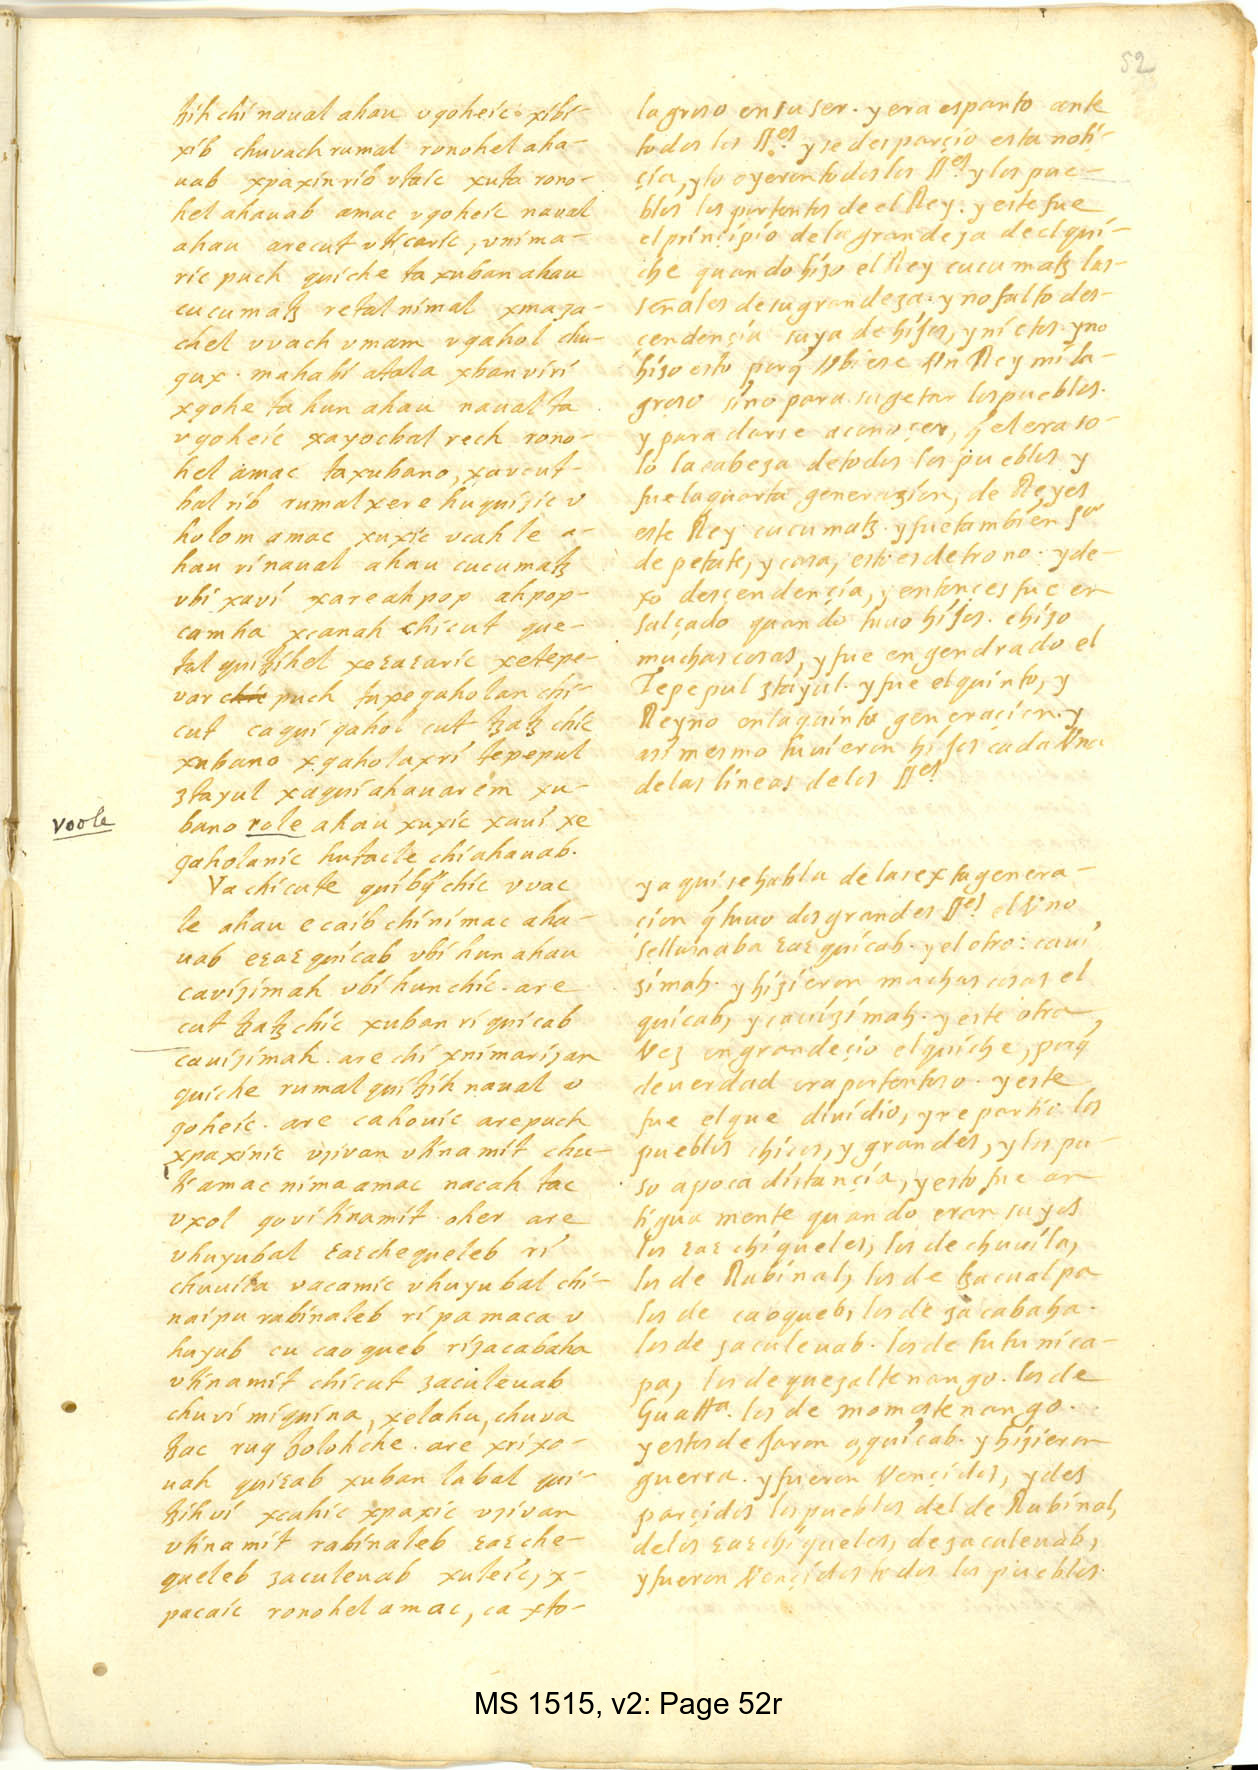 52
tzih chi naual ahau vqoheic. xibi-
xib chuvach rumal ronohel aha-
uab xpaxin rib vtaic xuta rono-
hel ahauab amac vqoheic naual
ahau arecut vticaric, vnima-
ric puch quiche ta xuban ahau
cucumatz retal nimal xmaza-
chel vvach vmam vqahol chu-
qux. mahabi atala xban viri
xqohe ta hun ahau naual ta
vqoheic xayochal rech rono-
hel amac taxubano, xavcut-
bal rib rumal xere huquizic v
holom amac xuxic vcah le a-
hau ri naual ahau cucumatz
vbi xaui xare ahpop ahpop-
camha xcanah chicut que-
tal quitzihel xeɛaɛaric xetepe-
var chic puch taxeqaholan chi-
cut caqui qahol cut tzatz chic
xubano xqaholaxri tepepul
ztayul xaquiahauarem xu-
bano role ahau xuxic xaui xe
voole
qaholanic hutacle chiahauab.
Va chicute quibÿ chic vvac
le ahau e caib chinimac aha-
uab eɛaɛ quicab vbi hun ahau
cavizimah vbi hunchic. are
cut tzatz chic xuban ri quicab
cauizimah. are chi xnimarizan
quiche rumal quitzih naual v
qoheic. are cahouic arepuch
xpaxinic vzivan vtinamit chu-
ti amac nima amac nacah tac
vxol qovi tinamit. oher are
vhuyubal ɛaɛchequeleb ri
chuuila vacamic vhuyubal chi-
naipu rabinaleb ri pamaca v
huyub cu caoqueb rizacabaha
vtinamit chicut zaculeuab
chuvi miquina, xelahu, chuva
tzac ruq tzolohche. are xrixo-
uah quiɛab xuban labal qui-
tzihvi xcahic xpaxic vzivan
vtinamit rabinaleb ɛaɛche-
queleb zaculeuab xuleic, x-
pacaic ronohel amac, ca xto-
lagroso en su ser. y era espanto ante
todos los ss.es y se desparçio esta noti-
çia, y lo oyeron todos los ss.es y los pue-
blos los portentos de el Rey. y este fue
el prinçipio de la grandeza de el qui-
che quando hizo el Rey cucumatz las-
señales de su grandeza. y no falto des-
cendençia suya de hijos, y nietos. y no
hizo esto porq̃ vbiese vn Rey mila-
groso sino para sugetar los pueblos.
y para darse a conoçer, q̃ el era so-
lo la cabeza de todos los pueblos y
fue la quarta generaçion, de Reyes
este Rey cucumatz. y fue tambien sor
de petate, y casa, esto es de trono. y de-
xo desçendençia, y entonçes fue en
salçado quando tuuo hijos. e hizo
muchas cosas, y fue engendrado el
Tepepul ztayul. y fue el quinto, y
Reyno en la quinta generaçion. y
asi mesmo tuuieron hijos cada vna
de las lineas de los ss.es
y aqui se habla de la sexta genera-
çion q̃ tuuo dos grandes ss.es el vno
se llamaba ɛaɛquicab. y el otro: caui
zimah. y hizieron muchas cosas el
quicab, y cauizimah. y este otra
vez engrandeçio el quiche, porq̃
de verdad era portentoso. y este
fue el que diuidio, y repartio los
pueblos chicos, y grandes, y los pu-
so a poca distançia, y esto fue an
tigua mente quando eran suyos
los ɛaɛchiqueles, los de chuuila,
los de Rubinal, los de tzacualpa
los de caoqueb, los de zacabaha.
los de zaculeuab. los de tutunica-
pa, los de quezaltenango. los de
Guatta. los de momostenango.
y estos dejaron a, quicab. y hizieron
guerra. y fueron vençidos, y des
parçidos los pueblos del de Rabinal,
de los ɛaɛchiqueles, de zaculeuab,
y fueron vençidos todos los pueblos.
MS 1515, v2: Page 52r